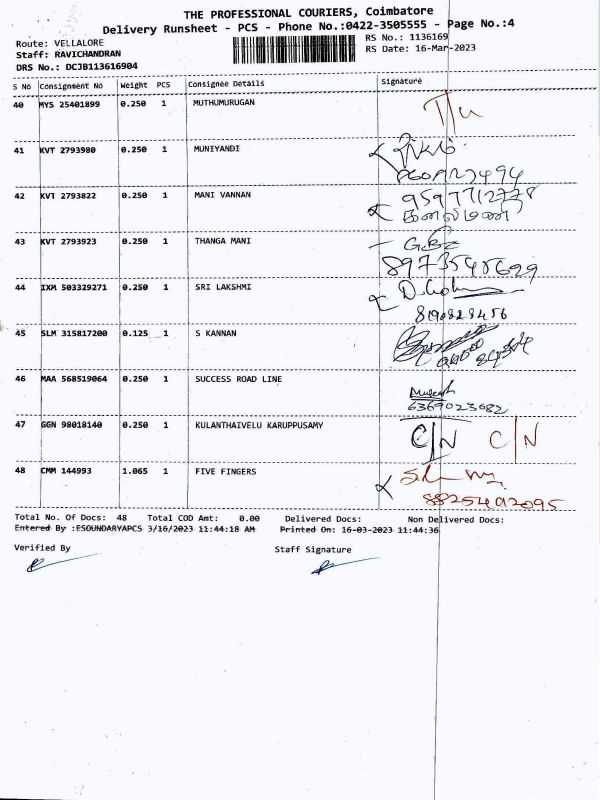 THE PROFESSIONAL COURIERS, Coimbatore
Delivery Runsheet - PCS - Phone No.:0422-3505555 - Page No.:4
Route: VELLALORE
Staff: RAVICHANDRAN
DRS No.: DCJB113616904
RS No.: 1136169
RS Date: 16-Mar-2023
S No Consignment No Weight PCS Consignee Details Signature
40 MYS 25401899 0.250 1 MUTHUMURUGAN
41 KVT 2793980 0.250 1 MUNIYANDI
42 KVT 2793822 0.250 1 MANI VANNAN 9597712778
43 KVT 2793923 0.250 1 THANGA MANI
8973545629
44 IXM 503329271 0.250 1 SRI LAKSHMI
8190828456
45 SLM 315817200 0.125 1 S KANNAN
46 MAA 568519064 0.250 1 SUCCESS ROAD LINE
6369023682
47 GGN 98018140 0.250 1 KULANTHAIVELU KARUPPUSAMY C/N C/N
48 CMM 144993 1.065 1 FIVE FINGERS
8825402095
Total No. Of Docs: 48 Total COD Amt: 0.00 Delivered Docs: Non Delivered Docs:
Entered By :ESOUNDARYAPCS 3/16/2023 11:44:18 AM Printed On: 16-03-2023 11:44:36
Verified By Staff Signature